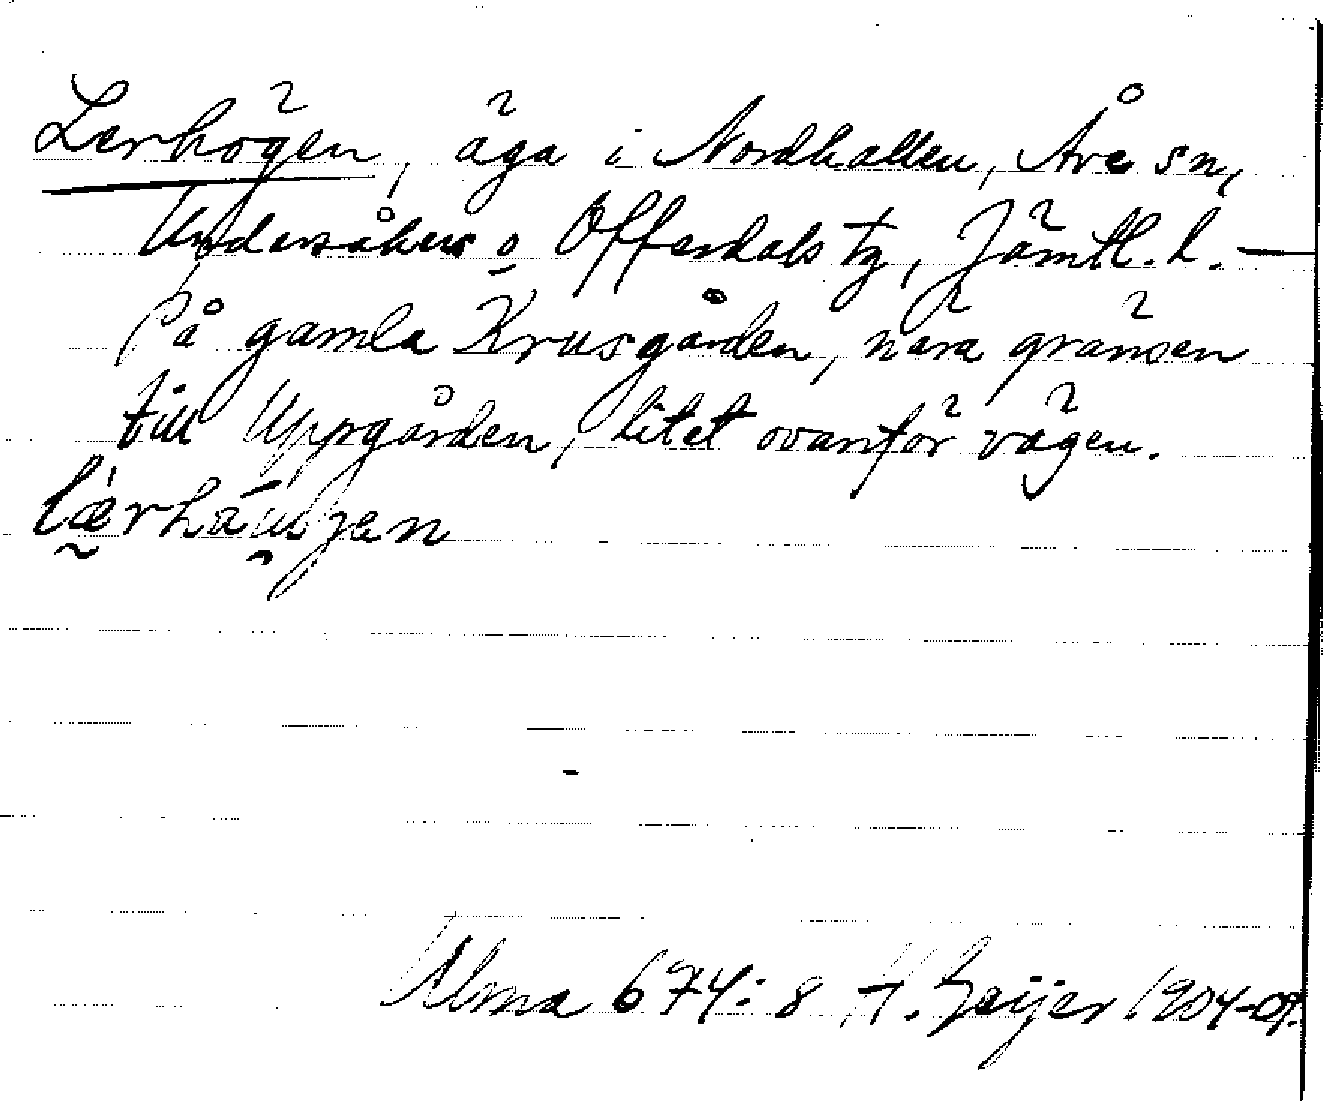 Lerhögen, äga i Nordhallen, Åre sn,
Undersåkers o Offerdals tg, Jämtl. l. —
På gamla Krusgården, nära gränsen
till Uppgården, litet ovanför vägen.
Alma 674:8 H. Geijer 1904-07.